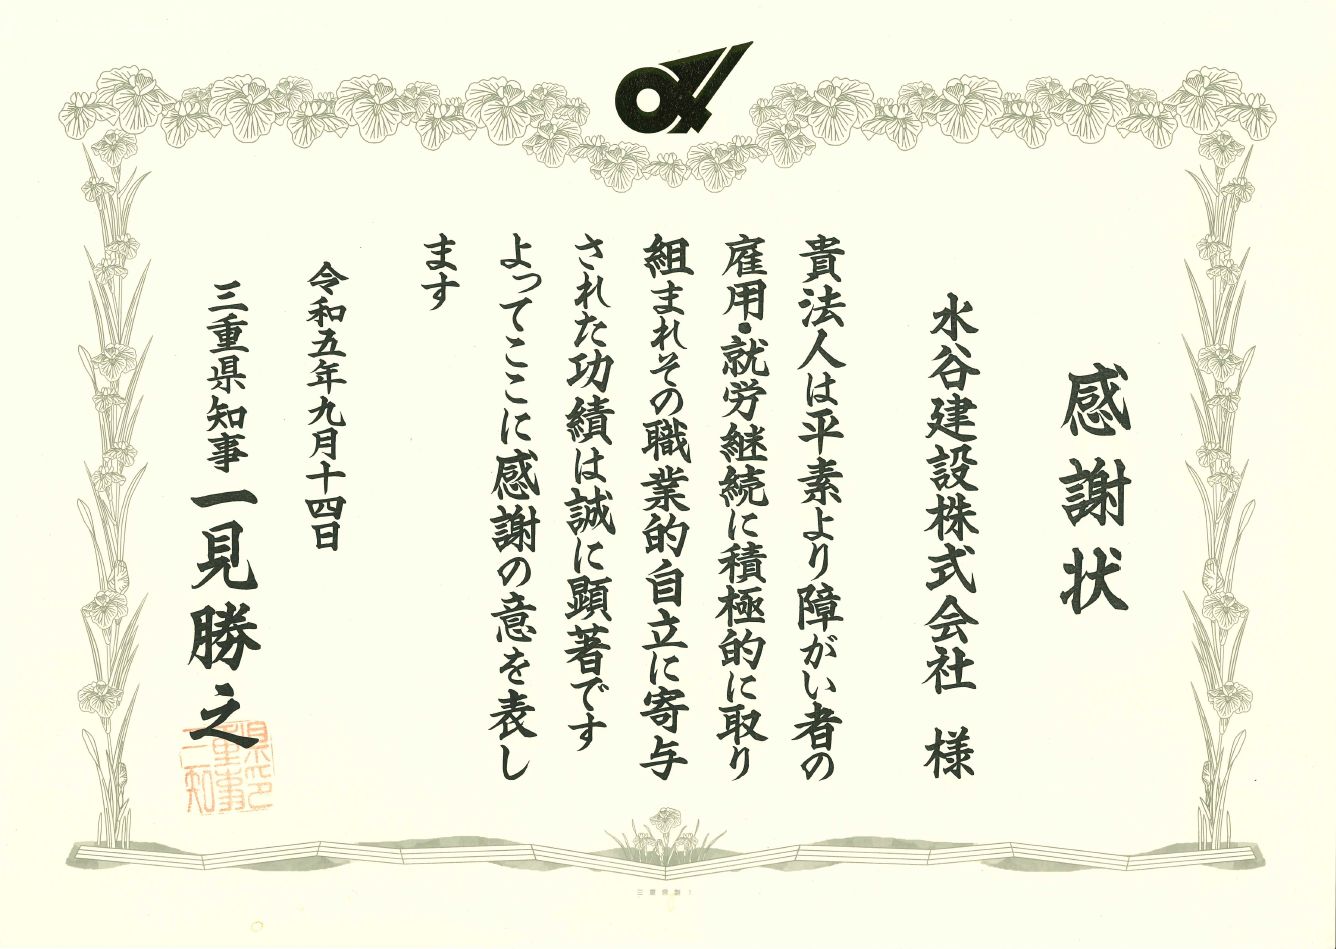 感謝状
水谷建設株式会社 様
貴法人は平素より障がい者の
雇用・就労継続に積極的に取り
組まれその職業的自立に寄与
された功績は誠に顕著です
よってここに感謝の意を表し
ます
令和五年九月十四日
三重県知事 一見勝之
三重県知事印